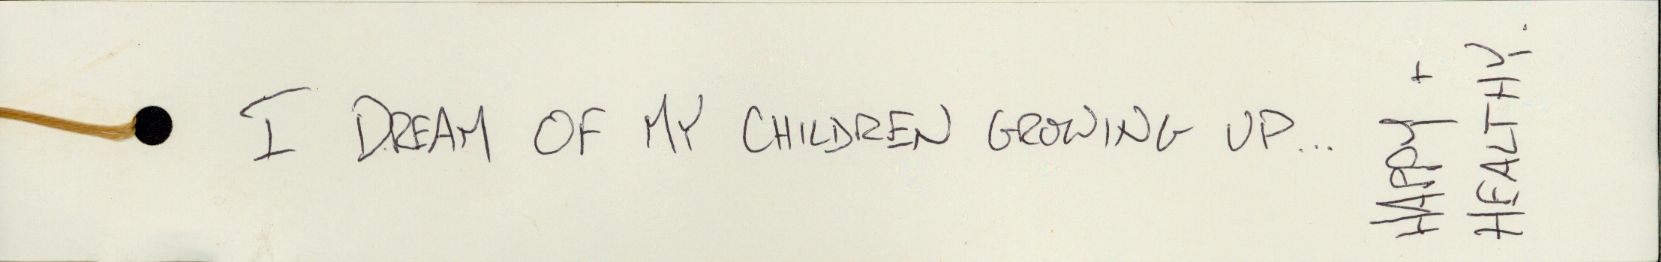 I DREAM OF MY CHILDREN GROWING UP...
HAPPY +
HEALTHY.